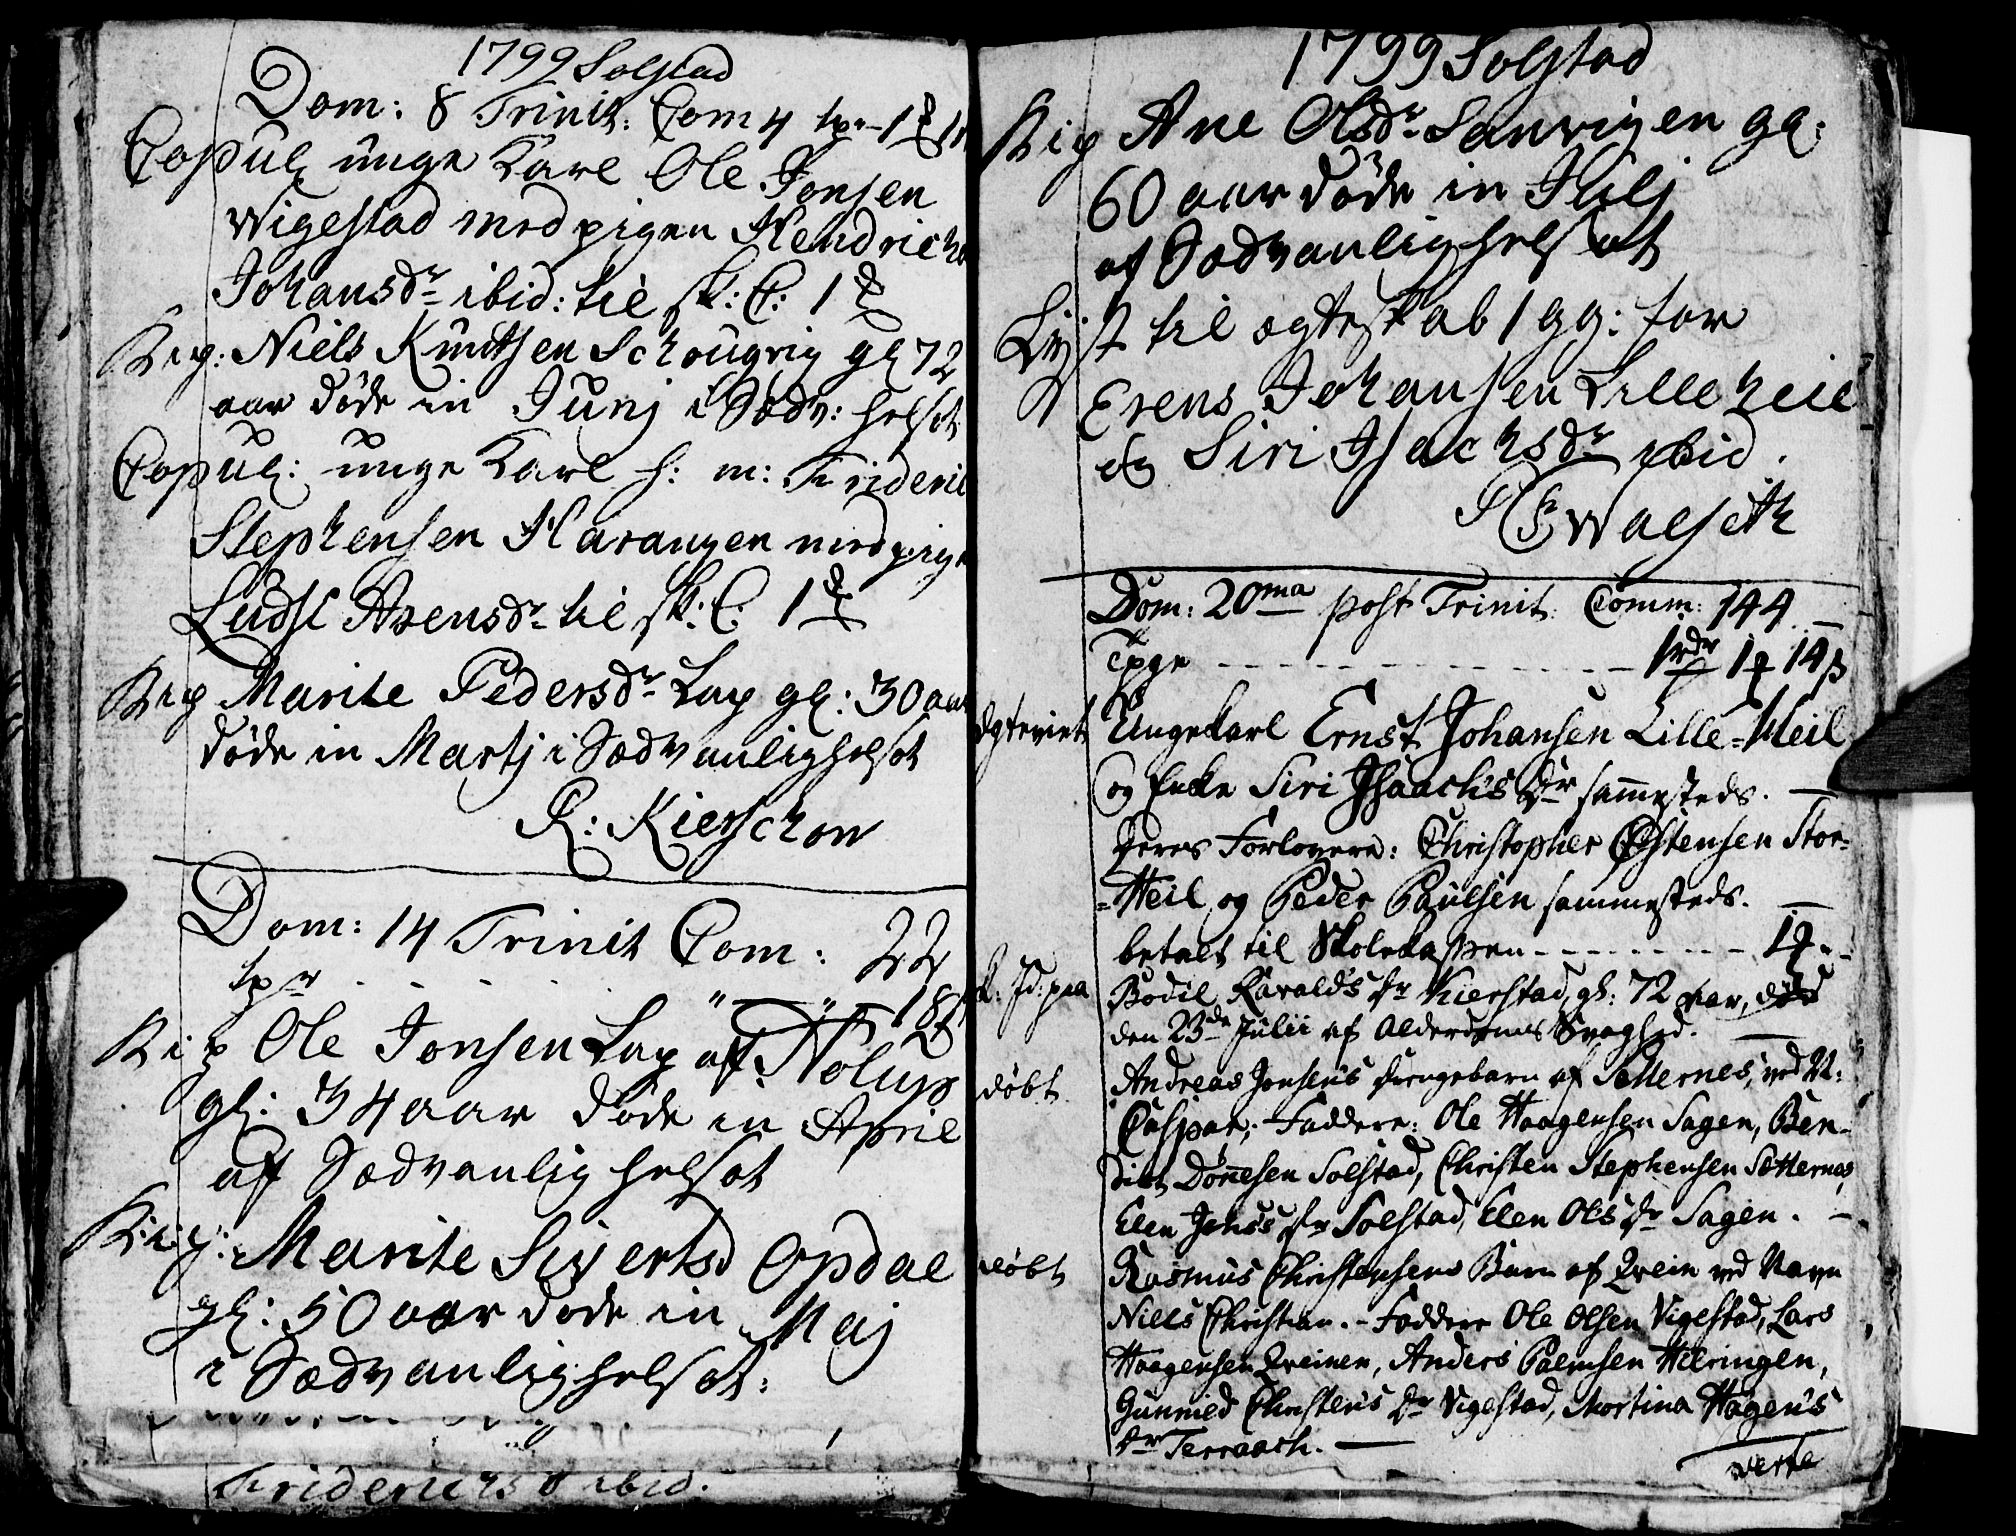 1799 Solstad
Dom: 8 Trinit: Com 4 tpr 1
Copul unge Karl Ole Jonsen
Wigestad med pigen Hendrich
Johansdr ibid: til sk: C: 1
Beg: Niels Knudtsen Schougvig gl 72
aar døde in Junj i Sædv: helsot
Copul: unge Karl h: m: Friderik
Stephensen Harangen med pige
Ludsl Arensdr til sk: C: 1
Beg Marite Pedersdr Lap gl: 30 aar
døde in Martj i Sædvanlig helsot
R: Kierschow
Dom: 14 Trinit Com: 22
tpr
Beg Ole Jonsen Lap af Holup
gl: 34 aar døde in April
af Sædvanlig helsot
Beg: Marite Sivertsd Opdal
gl: 50 aar døde in Maj
i Sædvanlig helsot:
Fridericksd ibid.
1799 Solstad
Beg Ane Olsdr Sanvigen gl:
60 aar døde in Julj
af Sædvanlig helsot
Lyst til ægteskab 1 gg: for
Erens Johansen Lilleheil
og Siri Isachsdr ibid.
Walseth
Dom: 20ma post Trinit: Comm: 144
Tpge 1rdr 1 14ß
Ægteviet Ungekarl Ernst Johansen Lille-Heil
og Enke Siri Isaachs dr sammesteds.
Deres Forlovere: Christopher Østensen Stor-
Heil og Peder Paulsen sammesteds.
betalt til Skolekassen 1
Bodil Haralds dr Kierstad, gl: 72 aar, døde
den 23de Julii af Alderdoms Svaghed.
døbt Andreas Jonsens drengebarn af Setternes, ved N:
Caspar; Faddere: Ole Haagensen Sagen, Ben-
dict Dønnesen Solstad, Christen Stephensen Sætternes,
Elen Jens dr Solstad, Elen Ols dr Sagen.
døbt Rasmus Christensens Barn af Qvein ved Navn
Niels Christian. Faddere Ole Olsen Vigestad, Lars
Haagensen Qveinen, Anders Palmsen Hilringen,
Gunnild Christens dr Vigestad, Martina Hagens
dr Terraach.
verte